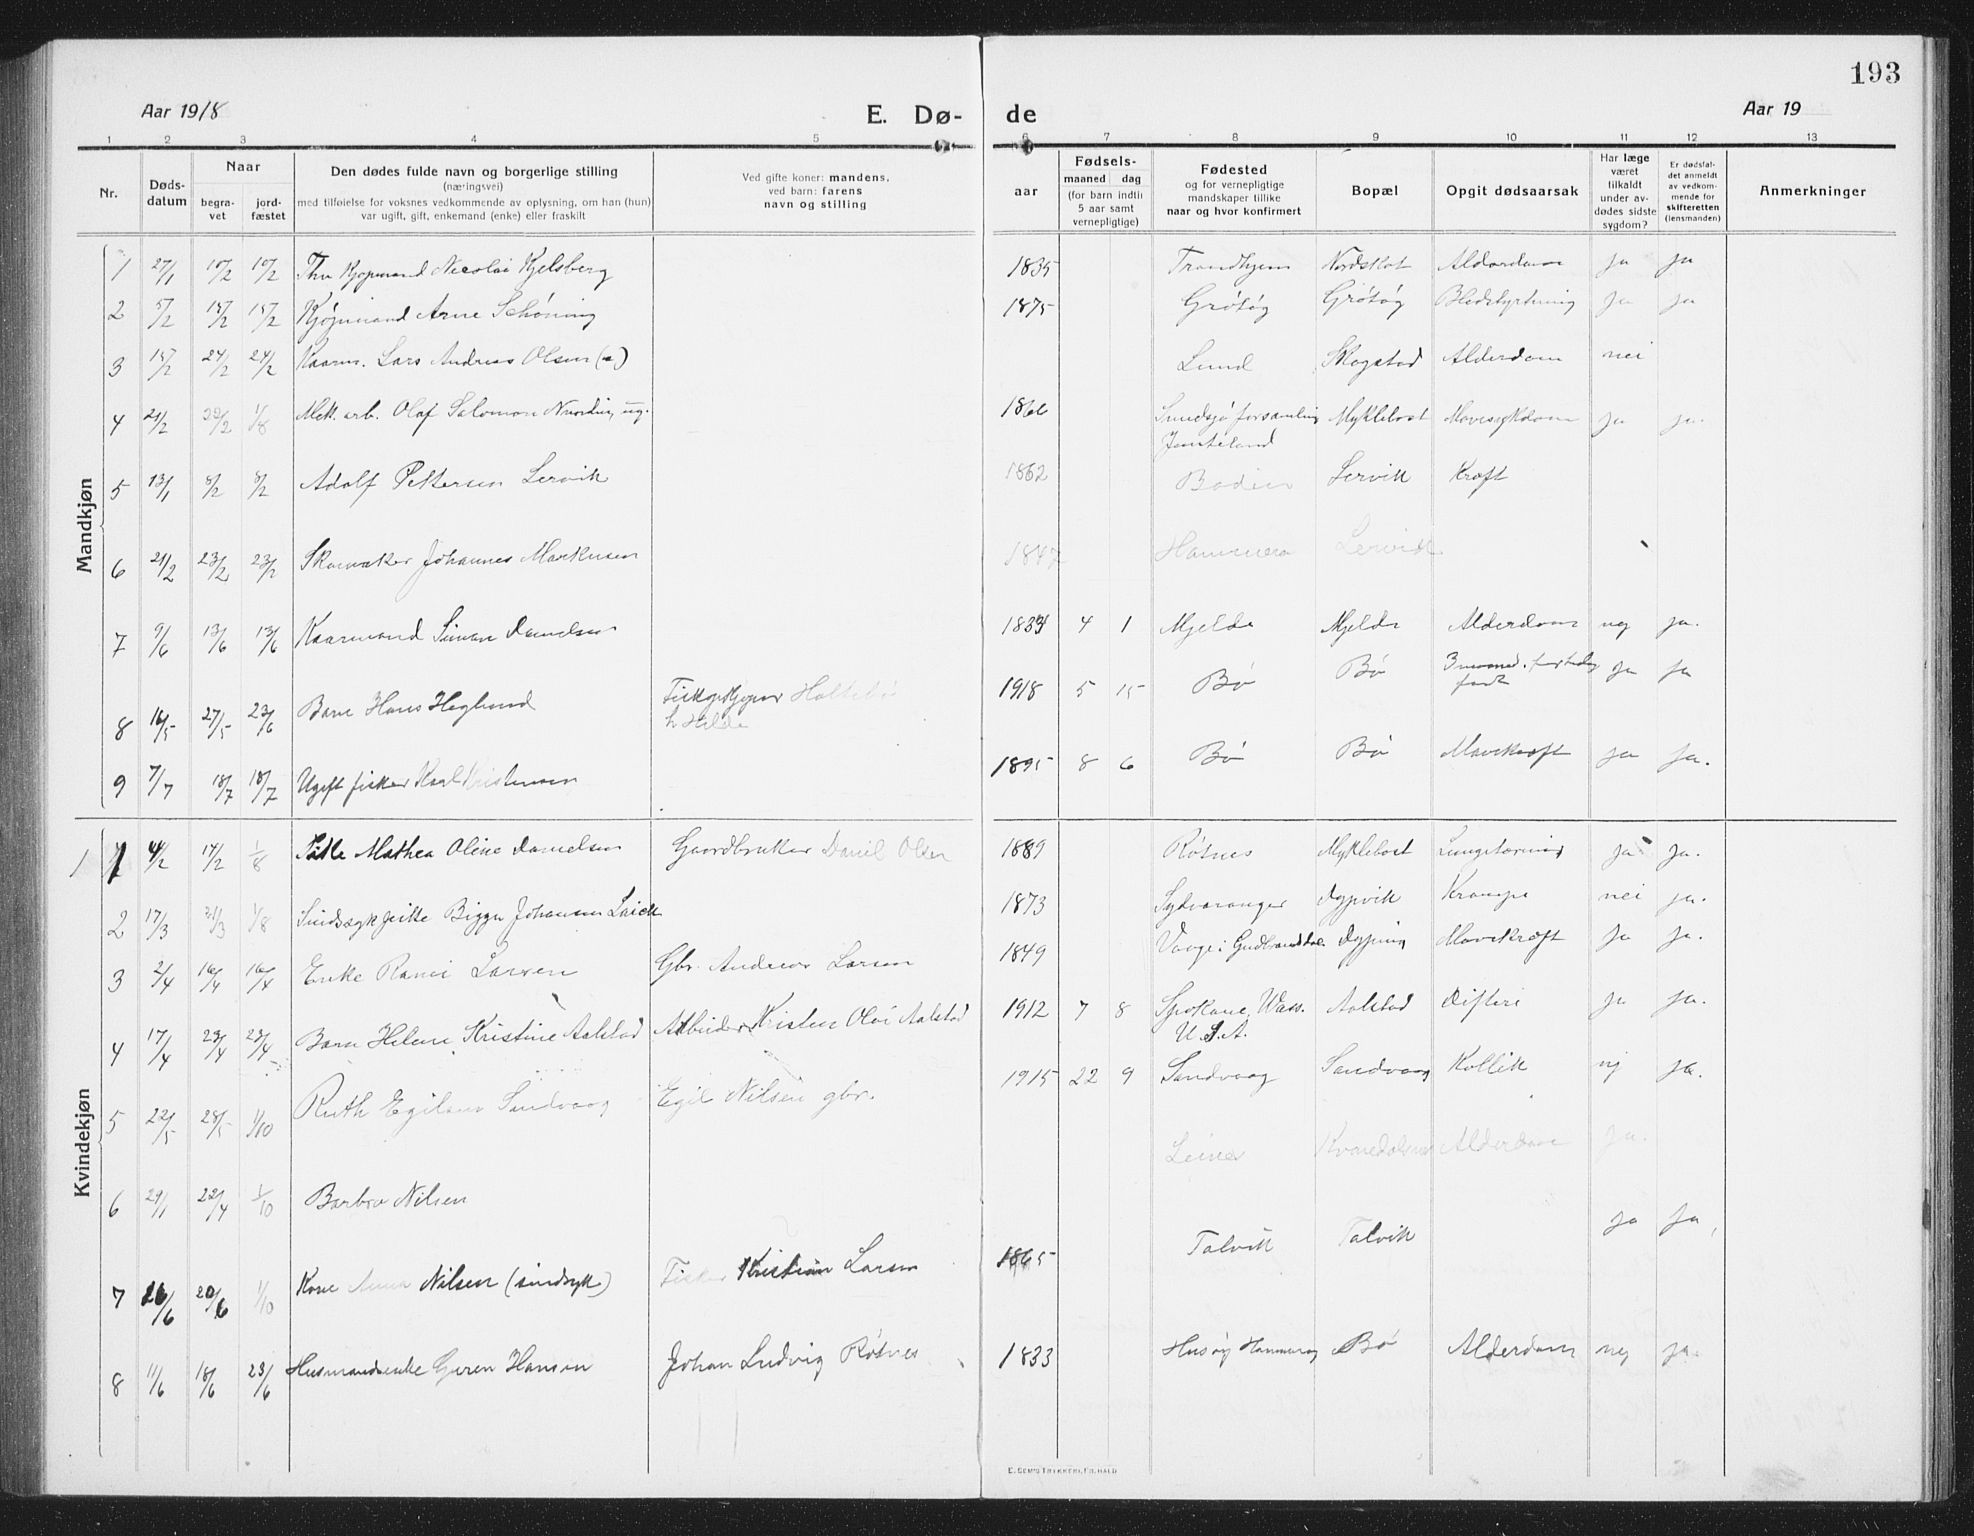 193
Aar 1918
E. Dø-
de
Aar 19
1 2 3 4 5 6 7 8 9 10 11 12 13
Nr.
Døds-
datum
Naar
begra-
vet
jord-
fæstet
Den dødes fulde navn og borgerlige stilling
(næringsvei)
med tilføielse for voksnes vedkommende av oplysning, om han (hun)
var ugift, gift, enkemand (enke) eller fraskilt
Ved gifte koner: mandens,
ved barn: farens
navn og stilling
aar
Fødsels-
maaned dag
(for barn indtil
5 aar samt
vernepligtige)
Fødested
og for vernepligtige
mandskaper tillike
naar og hvor konfirmert
Bopæl
Opgit dødsaarsak
Har læge
været
tilkaldt
under av-
dødes sidste
sygdom?
Er dødsfal-
det anmeldt
av vedkom-
mende for
skifteretten
(lensmanden)
Anmerkninger
Mandkjøn
1 27/1 10/2 10/2 Fhv Kjøpmand Nicolai Kjelsberg 1835 Trondhjem Nordskot Alderdom ja ja
2 5/2 15/2 15/2 Kjøpmand Arne Schöning 1875 Grötöy Grötöy Blodstyrtning ja ja
3 15/2 24/2 24/2 Kaarm. Lars Andreas Olsen Lund Skogstad Alderdom nei
4 21/2 22/2 1/8 Mek. arb. Olof Salomon ug. 1866 Sundsjö forsamling Myklebost Mavesykdom ja ja.
Jemteland
5 13/1 8/2 8/2 Adolf Pettersen Lervik 1862 Bodin Lervik Kræft
6 21/2 23/2 23/2 Skomaker Johannes Markusen 1847 Hammerø Lervik
7 9/6 13/6 13/6 Kaarmand Simon Danielsen 1834 4 1 Mjelde Mjelde Alderdom nej ja.
8 16/5 27/5 23/6 Barn Hans Heglund 1918 5 15 Bö Bö 3 maaned. for tidlig ja ja
født
9 7/7 18/7 18/7 Ugift fisker Karl Kristensen 1895 8 6 Bö Bö Mavekræft ja ja.
Kvindekjøn
1 4/2 17/2 1/8 Mathea Oline Danielsen Gaardbruker Daniel Olsen 1889 Røtnes Myklebost Lungetæring ja ja.
2 17/3 21/3 1/8 Sindssyk pike Johansen 1873 Sydvaranger Dypvik Krampe nei ja.
3 2/4 16/4 16/4 Enke Larsen Gbr. Andreas Larsen 1849 Vaage i Gudbrandsdal. Mavekræft ja ja.
4 17/4 23/4 23/4 Barn Helene Kristine Aalstad Arbeider Kristen Aalstad 1912 7 8 Spokane, Wass. Aalstad Difteri ja ja.
U.S.A.
5 22/5 28/5 1/10 Ruth Egilsen Sandvaag Egil Nilsen gbr. 1915 22 9 Sandvaag Sandvaag Kollik nj ja.
6 29/1 22/4 1/10 Barbro Nilsen Leines Alderdom ja.
7 26/6 20/6 1/10 Kone Anna Nilsen (sindsyk) Fisker Kristian Larsen 1865 Talvik Talvik ja ja,
8 11/6 18/6 23/6 Husmandsenke Guren Hansen Johan Ludvig Røtnes 1833 Husøy Hammerøy Bö Alderdom nej ja.
E. SEM'S TRYKKERI, FR.HALD